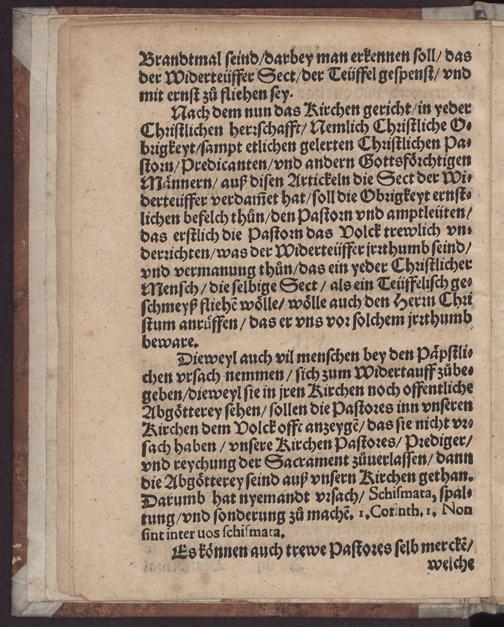 Brandtmal seind/darbey man erkennen soll/das
der Widerteüffer Sect/der Teüffel gespenst/vnd
mit ernst zů fliehen sey.
Nach dem nun das Kirchen gericht/in yeder
Christlichen herzschafft/Nemlich Christliche O⸗
brigkeyt/sampt etlichen gelerten Christlichen Pa⸗
storn/Predicanten/vnd andern Gottsförchtigen
Männern/auß disen Artickeln die Sect der Wi⸗
derteüffer verdam̃et hat/soll die Obrigkeyt ernst⸗
lichen befelch thůn/den Pastorn vnd amptleüten/
das erstlich die Pastorn das Volck trewlich vn⸗
derrichten/was der Widerteüffer jrrthumb seind/
vnd vermanung thůn/das ein yeder Christlicher
Mensch/die selbige Sect/als ein Teüffelisch ge⸗
schmeyß fliehē wölle/wölle auch den Herrn Chri
stum anrüffen/das er vns vor solchem jrrthumb
beware.
Dieweyl auch vil menschen bey den Päpstli⸗
chen vrsach nemmen/sich zum Widertauff zůbe⸗
geben/dieweyl sie in jren Kirchen noch offentliche
Abgötterey sehen/sollen die Pastores inn vnseren
Kirchen dem Volck offt anzeygē/das sie nicht vr⸗
sach haben/vnsere Kirchen Pastores/Prediger/
vnd reychung der Sacrament zůuerlassen/dann
die Abgötterey seind auß vnsern Kirchen gethan.
Darumb hat nyemandt vrsach/Schismata, spal⸗
tung/vnd sonderung zů machē. 1. Corinth. 1. Non
sint inter uos schismata.
Es können auch trewe Pastores selb merckē/
welche